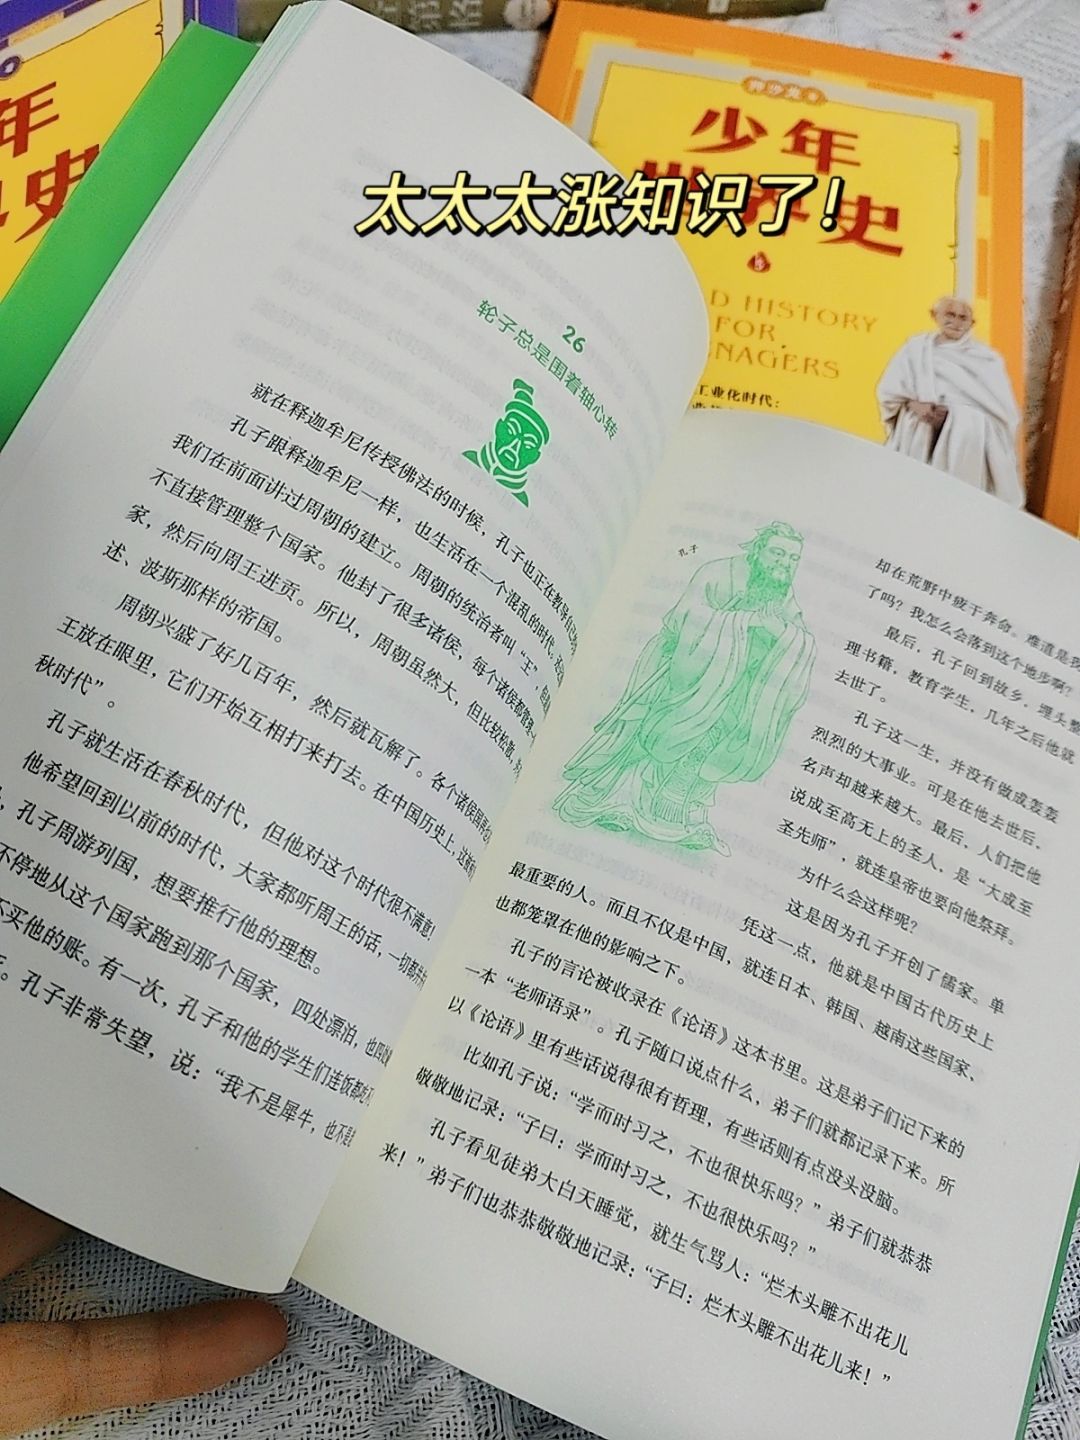 年
史
少年
世界史
HISTORY
FOR
工业化时代：
太太太涨知识了！
26
轮子总是围着轴心转
就在释迦牟尼传授佛法的时候，孔子也正在教导自己
孔子跟释迦牟尼一样，也生活在一个混乱的时代。
我们在前面讲过周朝的建立。周朝的统治者叫“王”，
不直接管理整个国家。他封了很多诸侯，每个诸侯都管理
家，然后向周王进贡。所以，周朝虽然大，但比较松散，
述、波斯那样的帝国。
周朝兴盛了好几百年，然后就瓦解了。各个诸侯国再也
王放在眼里，它们开始互相打来打去。在中国历史上，这
秋时代”。
孔子就生活在春秋时代，但他对这个时代很不满意！
他希望回到以前的时代，大家都听周王的话，一切都
孔子周游列国，想要推行他的理想。
不停地从这个国家跑到那个国家，四处漂泊，也
买他的账。有一次，孔子和他的学生们连饭都
。孔子非常失望，说：“我不是犀牛，也不是
孔子
却在荒野中疲于奔命。难道是我
了吗？我怎么会落到这个地步啊？
最后，孔子回到故乡，埋头整
理书籍，教育学生，几年之后他就
去世了。
孔子这一生，并没有做成轰轰
烈烈的大事业。可是在他去世后，
名声却越来越大。最后，人们把他
说成至高无上的圣人，是“大成至
圣先师”，就连皇帝也要向他祭拜。
为什么会这样呢？
这是因为孔子开创了儒家。单
凭这一点，他就是中国古代历史上
最重要的人。而且不仅是中国，就连日本、韩国、越南这些国家，
也都笼罩在他的影响之下。
孔子的言论被收录在《论语》这本书里。这是弟子们记下来的
一本“老师语录”。孔子随口说点什么，弟子们就都记录下来。所
以《论语》里有些话说得很有哲理，有些话则有点没头没脑。
比如孔子说：“学而时习之，不也很快乐吗？”弟子们就恭恭
敬敬地记录：“子曰：学而时习之，不也很快乐吗？”
孔子看见徒弟大白天睡觉，就生气骂人：“烂木头雕不出花儿
来！”弟子们也恭恭敬敬地记录：“子曰：烂木头雕不出花儿来！”